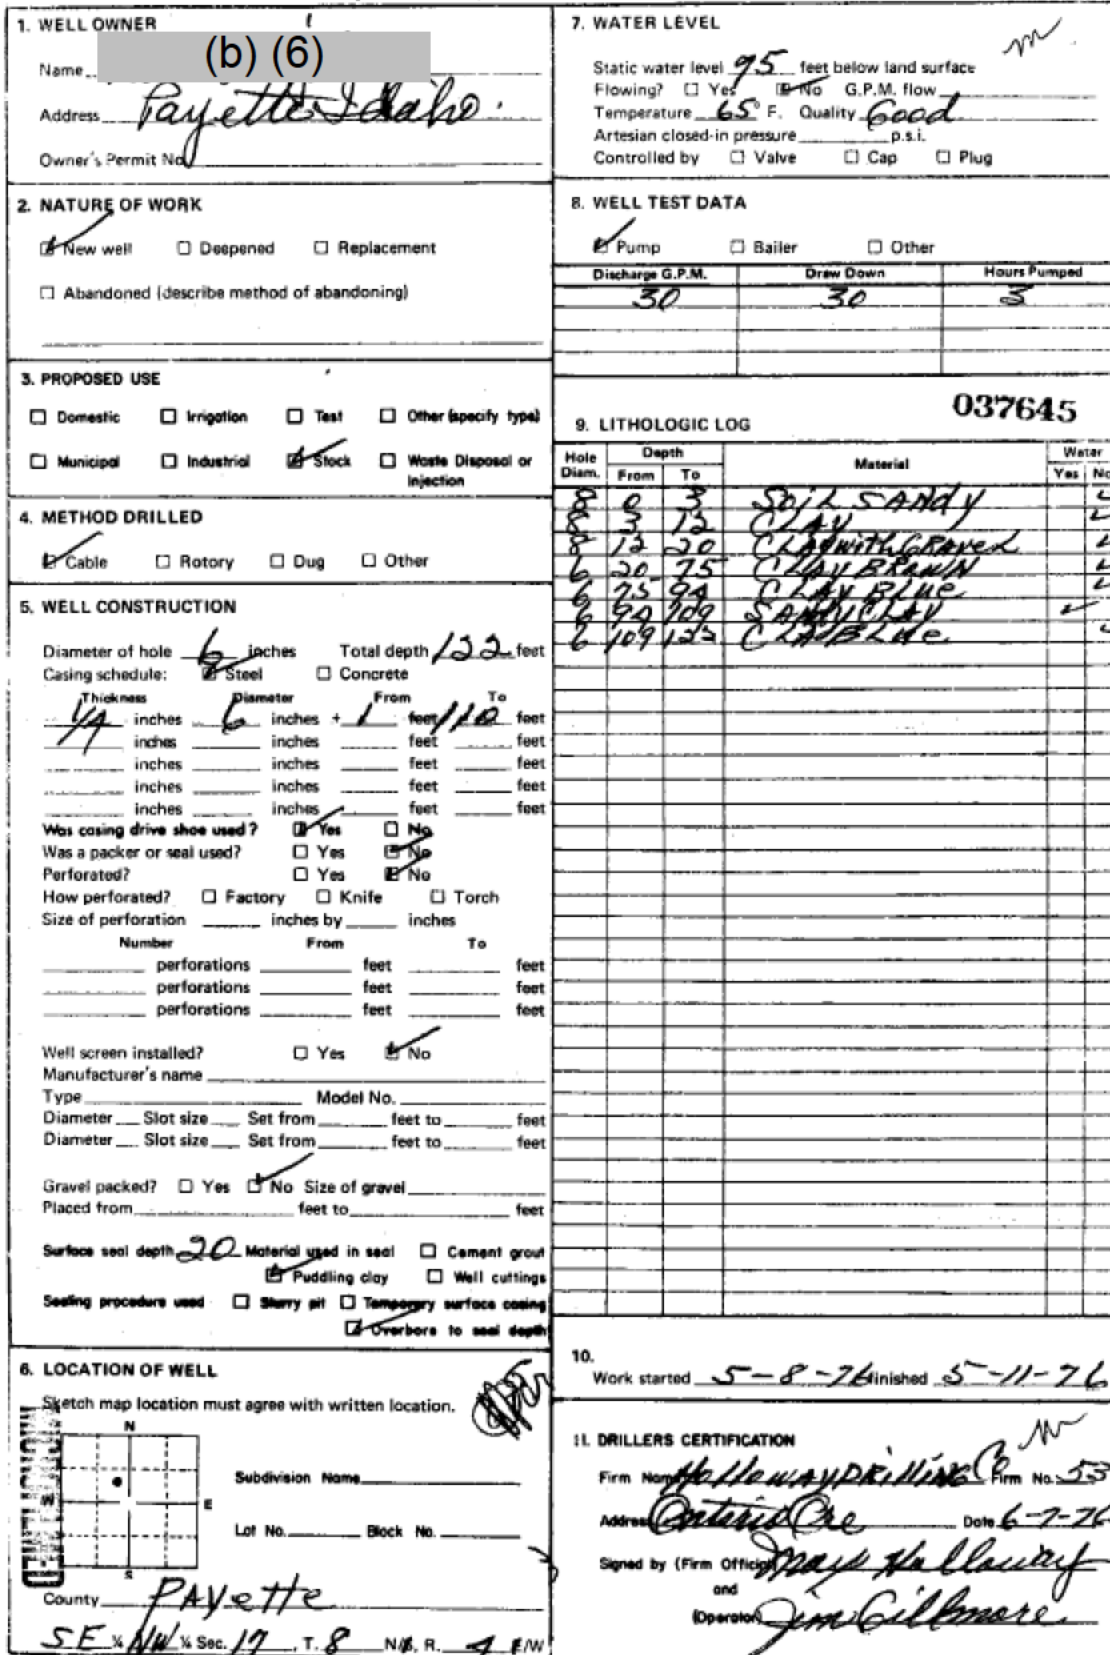 1. WELL OWNER
(b) (6)
Name
Address Payette Idaho
Owner's Permit No.
2. NATURE OF WORK
☑ New well ☐ Deepened ☐ Replacement
☐ Abandoned (describe method of abandoning)
3. PROPOSED USE
☐ Domestic ☐ Irrigation ☐ Test ☐ Other (specify type)
☐ Municipal ☐ Industrial ☑ Stock ☐ Waste Disposal or
Injection
4. METHOD DRILLED
☑ Cable ☐ Rotory ☐ Dug ☐ Other
5. WELL CONSTRUCTION
Diameter of hole 6 inches Total depth 122 feet
Casing schedule: ☑ Steel ☐ Concrete
Thickness Diameter From To
1/4 inches 6 inches + 1 feet 110 feet
inches inches feet feet
inches inches feet feet
inches inches feet feet
inches inches feet feet
Was casing drive shoe used? ☑ Yes ☐ No
Was a packer or seal used? ☐ Yes ☑ No
Perforated? ☐ Yes ☑ No
How perforated? ☐ Factory ☐ Knife ☐ Torch
Size of perforation inches by inches
Number From To
perforations feet feet
perforations feet feet
perforations feet feet
Well screen installed? ☐ Yes ☑ No
Manufacturer's name
Type Model No.
Diameter Slot size Set from feet to feet
Diameter Slot size Set from feet to feet
Gravel packed? ☐ Yes ☑ No Size of gravel
Placed from feet to feet
Surface seal depth 20 Material used in seal ☐ Cement grout
☑ Puddling clay ☐ Well cuttings
Sealing procedure used ☐ Slurry pit ☐ Temporary surface casing
☑ Overbore to seal depth
6. LOCATION OF WELL
Sketch map location must agree with written location.
N
W E
S
Subdivision Name
Lot No. Block No.
County PAYette
SE ¼ NW ¼ Sec. 17, T. 8 N/S, R. 4 E/W
7. WATER LEVEL
Static water level 95 feet below land surface
Flowing? ☐ Yes ☑ No G.P.M. flow
Temperature 65° F. Quality Good
Artesian closed-in pressure p.s.i.
Controlled by ☐ Valve ☐ Cap ☐ Plug
8. WELL TEST DATA
☑ Pump ☐ Bailer ☐ Other
Discharge G.P.M. Draw Down Hours Pumped
30 30 3
037645
9. LITHOLOGIC LOG
Hole Diam. Depth From To Material Water Yes No
8 0 3 SOIL SANdy ✓
8 3 12 CLAY ✓
8 12 20 CLAY with GRAVEL ✓
6 20 75 CLAY BROWN ✓
6 75 94 CLAY BLue ✓
6 94 109 SANDY CLAY ✓
6 109 122 CLAY BLue ✓
10.
Work started 5-8-76 finished 5-11-76
11. DRILLERS CERTIFICATION
Firm Name Holloway DRilliNG Co Firm No. 55
Address Ontario Ore Date 6-7-76
Signed by (Firm Official) Mary Holloway
and
(Operator) Jim Gillmore